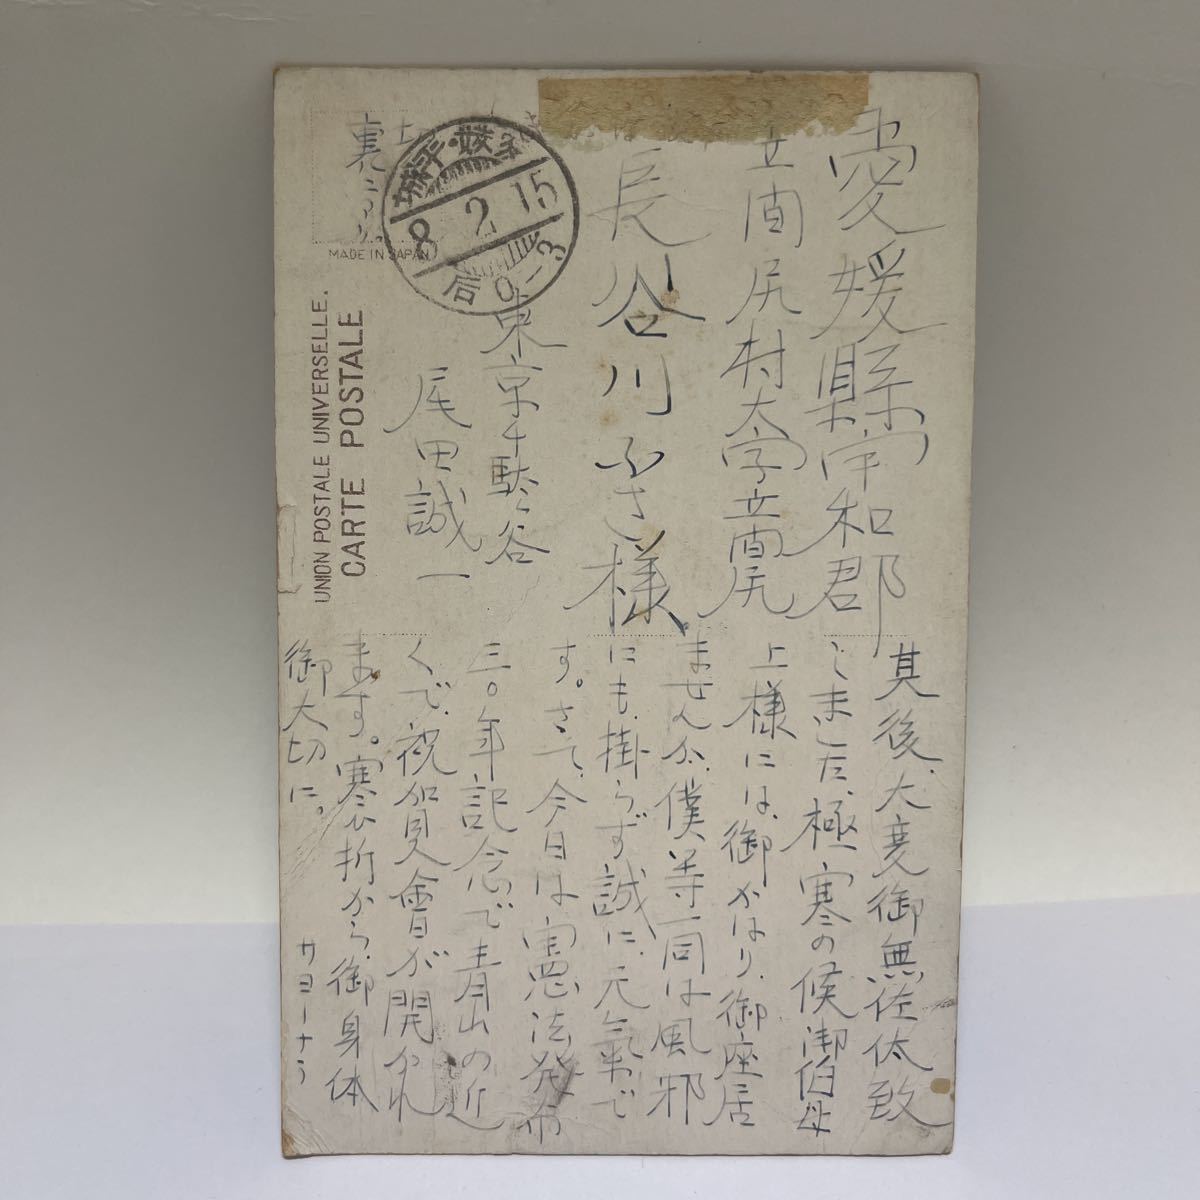 愛媛縣宇和郡
立间尻村大字立间尻
長谷川ふさ様
東京千駄谷
尾田誠一
裏ニアリ
8 2 15
后 0-3
MADE IN JAPAN
UNION POSTALE UNIVERSELLE.
CARTE POSTALE
其後大変御無佐体致
しました、極寒の候御伯母
上様には、御かはり、御座居
ませんか、僕等一同は風邪
にも、掛らず誠に、元氣で
す。さて、今日は憲法発布
三〇年記念で青山の近
くで、祝賀會が開かれ
ます。寒い折から、御身体
御大切に。
サヨーナラ